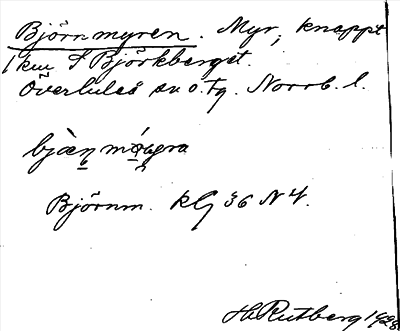 Björnmyren. Myr, knappt
1 km S Björkberget.
Överluleå sn o. tg. Norrb. l.
Björnm. kG 36 N 4.
H. Rutberg 1928